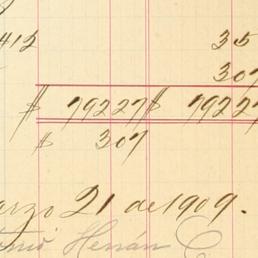 412 35
307
$ 79227 $ 7922
$ 307
arzo 21 de 1909.
Hernán C